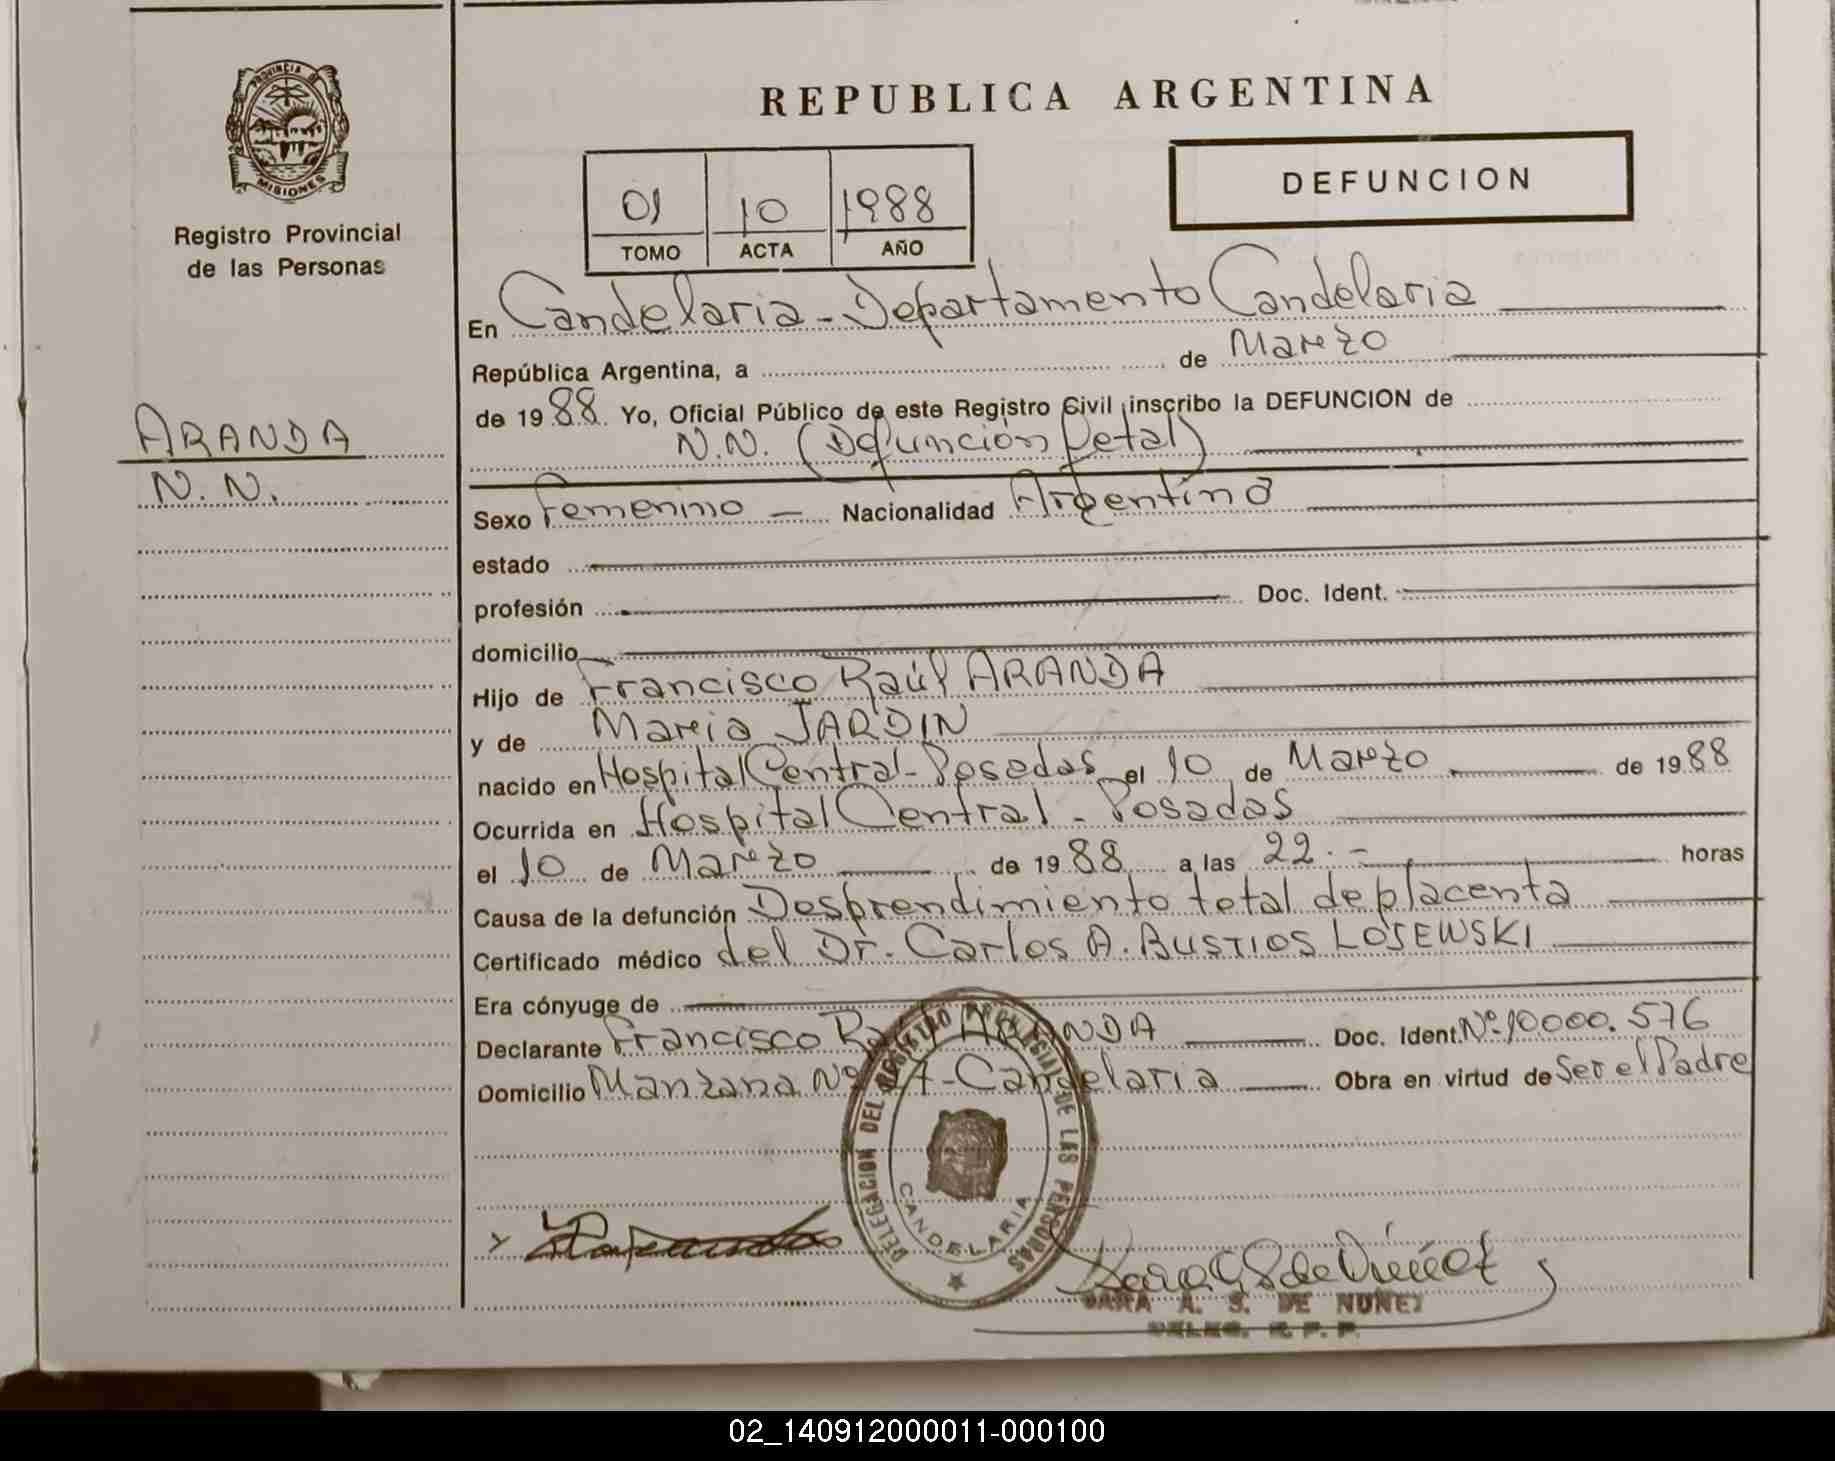 PROVINCIA DE
MISIONES
Registro Provincial
de las Personas
ARANDA
N. N.
REPUBLICA ARGENTINA
01 10 1988
TOMO ACTA AÑO
DEFUNCION
En Candelaria - Departamento Candelaria
República Argentina, a de Marzo
de 1988. Yo, Oficial Público de este Registro Civil inscribo la DEFUNCION de
N.N. (Defunción fetal)
Sexo Femenino — Nacionalidad Argentina
estado
profesión Doc. Ident.
domicilio
Hijo de Francisco Raúl ARANDA
y de María JARDIN
nacido en Hospital Central - Posadas el 10 de Marzo de 1988
Ocurrida en Hospital Central - Posadas
el 10 de Marzo de 1988 a las 22.- horas
Causa de la defunción Desprendimiento total de placenta
Certificado médico del Dr. Carlos A. BUSTIOS LOSEWSKI
Era cónyuge de
Declarante Francisco Raúl ARANDA Doc. Ident. Nº 10000.576
Domicilio Manzana Nº - Candelaria Obra en virtud de Ser el Padre
DELEGACION DEL REGISTRO PROVINCIAL DE LAS PERSONAS
CANDELARIA
SARA A. S. DE NUÑEZ
DELEG. R. P. P.
02_140912000011-000100